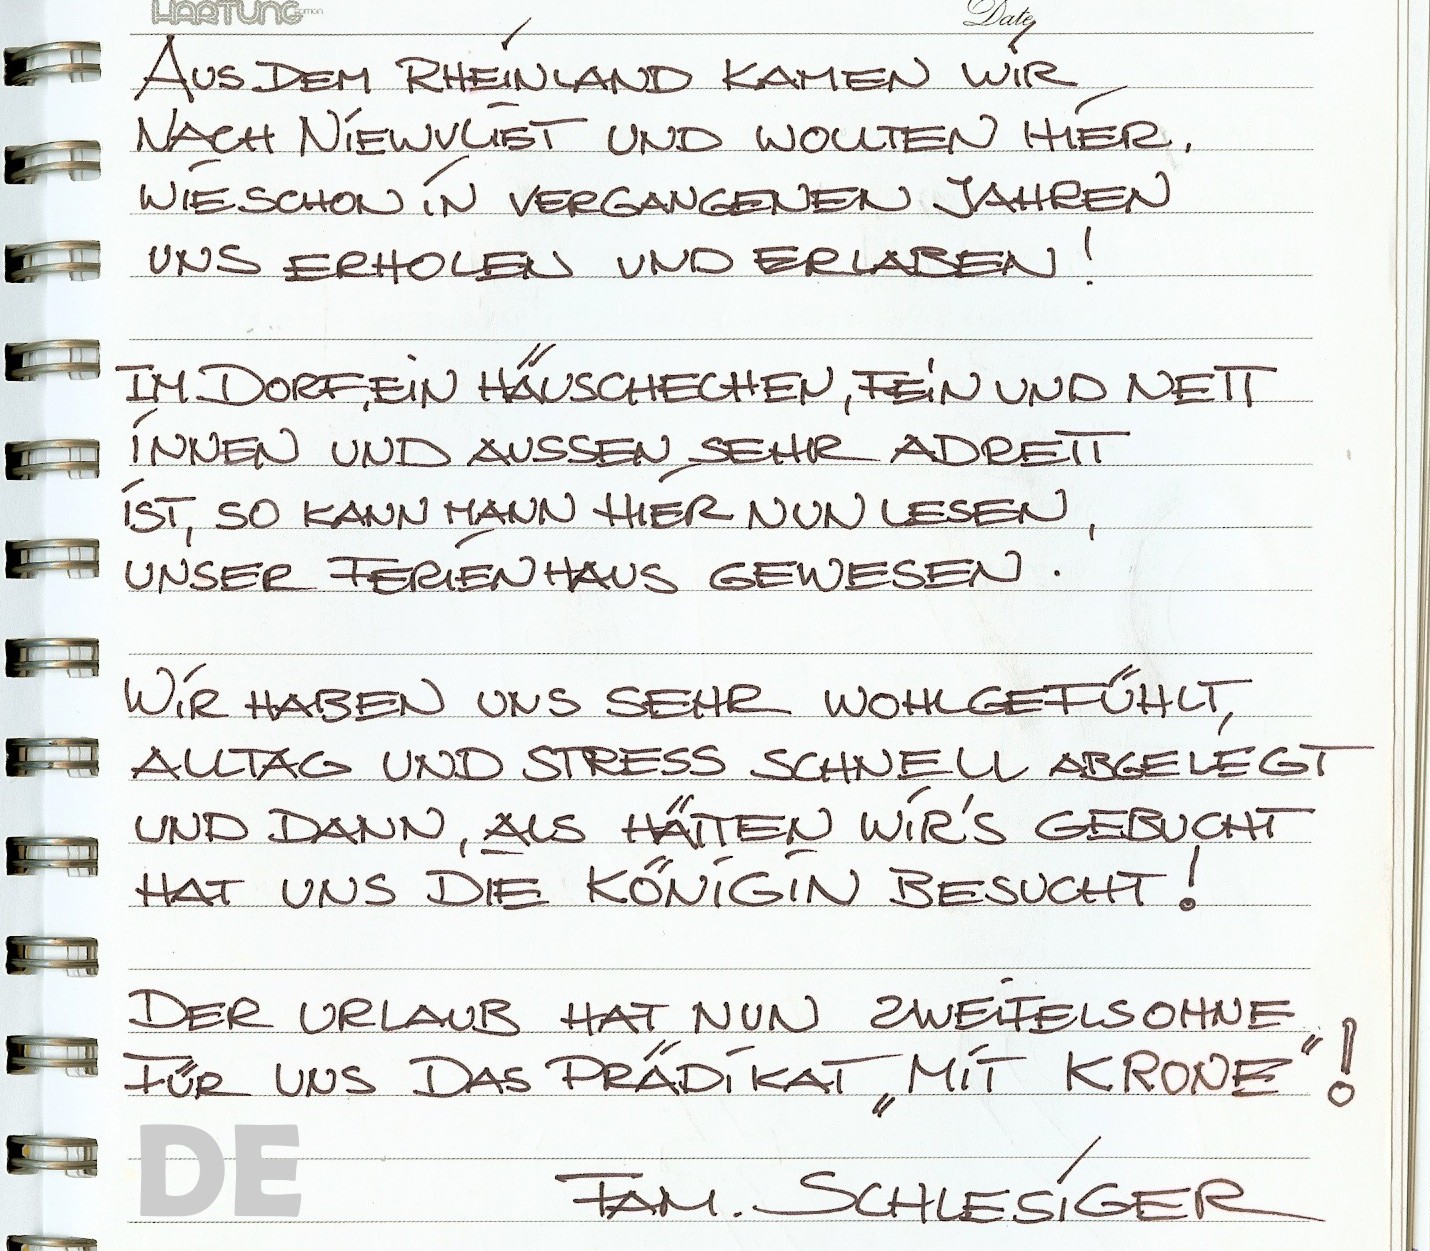 HARTUNG EDITION
Date
AUS DEM RHEINLAND KAMEN WIR
NACH NIEWVLIET UND WOLLTEN HIER,
WIE SCHON IN VERGANGENEN JAHREN
UNS ERHOLEN UND ERLABEN!
IM DORF, EIN HÄUSCHECHEN, FEIN UND NETT
INNEN UND AUSSEN SEHR ADRETT
IST, SO KANN MANN HIER NUN LESEN,
UNSER FERIENHAUS GEWESEN.
WIR HABEN UNS SEHR WOHLGEFÜHLT,
ALLTAG UND STRESS SCHNELL ABGELEGT
UND DANN, ALS HÄTTEN WIR'S GEBUCHT
HAT UNS DIE KÖNIGIN BESUCHT!
DER URLAUB HAT NUN ZWEIFELSOHNE
FÜR UNS DAS PRÄDIKAT „MIT KRONE"!
DE
FAM. SCHLESIGER